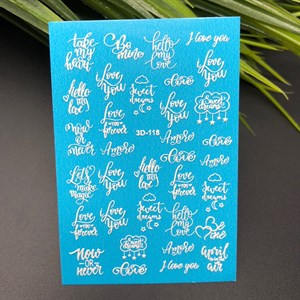 take my heart
Be mine
hello my love
I love you
Love You
Love You
Sweet dreams
Love
hello my love
Love you forever
Sweet dreams
now or never
Amore
3D-118
Amore
Love
Let's make magic
Love You
hello my love
Sweet dreams
Love You
Love you forever
Love You
Sweet dreams
hello my love
Love
now OR never
Sweet dreams
Love
Amore
I love you
April is in the air